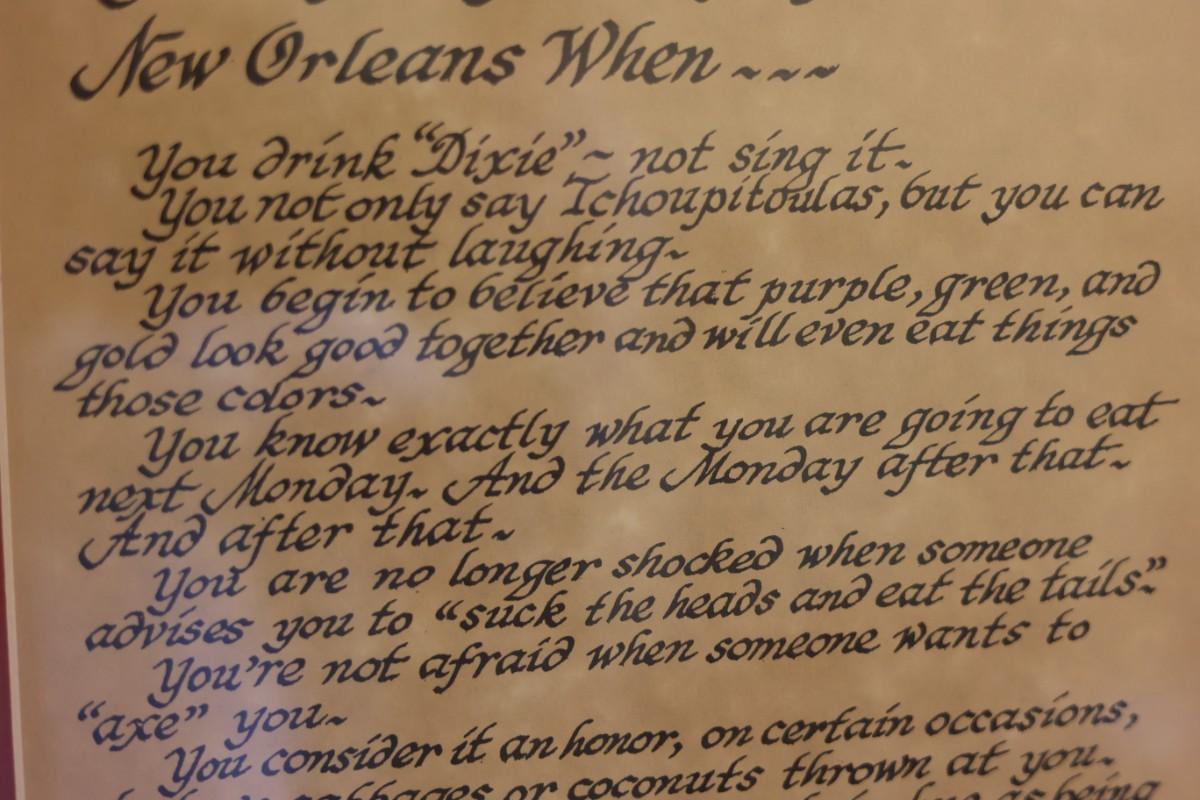 New Orleans When ~~~
You drink "Dixie" ~ not sing it~
You not only say Tchoupitoulas, but you can
say it without laughing~
You begin to believe that purple, green, and
gold look good together and will even eat things
those colors~
You know exactly what you are going to eat
next Monday~ And the Monday after that~
And after that~
You are no longer shocked when someone
advises you to "suck the heads and eat the tails"~
You're not afraid when someone wants to
"axe" you~
You consider it an honor, on certain occasions,
cabbages or coconuts thrown at you~
as being